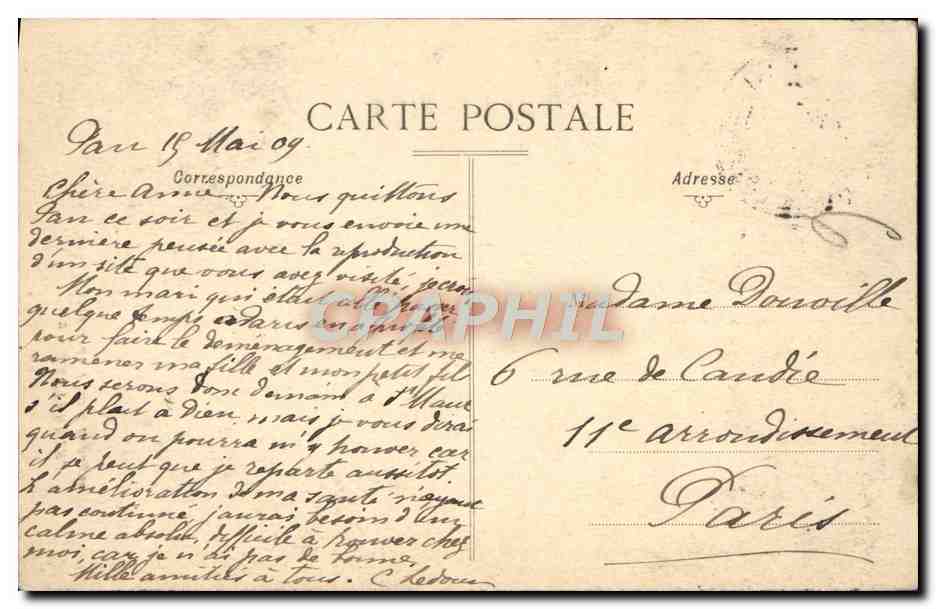 CARTE POSTALE
Pau 15 Mai 09.
Correspondance
Chère Anne Nous quittons
Pau ce soir et je vous envoie une
dernière pensée avec la reproduction
d'un site que vous avez visité, je crois
Mon mari qui était allé passer
quelque temps à Paris en a profité
pour faire le déménagement et me
ramener ma fille et mon petit fils
Nous serons donc demain à St Maur
s'il plait à Dieu, mais je vous dirai
quand on pourra m'y trouver car
il se peut que je reparte aussitôt
L'amélioration de ma santé n'ayant
pas continué j'aurai besoin d'un
calme absolu, difficile à trouver chez
moi, car je n'ai pas de bonne.
Mille amitiés à tous. C Ledoux
Adresse
Madame Douville
6 rue de Candie
11e arrondissement
Paris
CPAPHIL